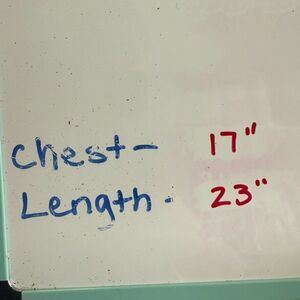 Chest- 17"
Length- 23"